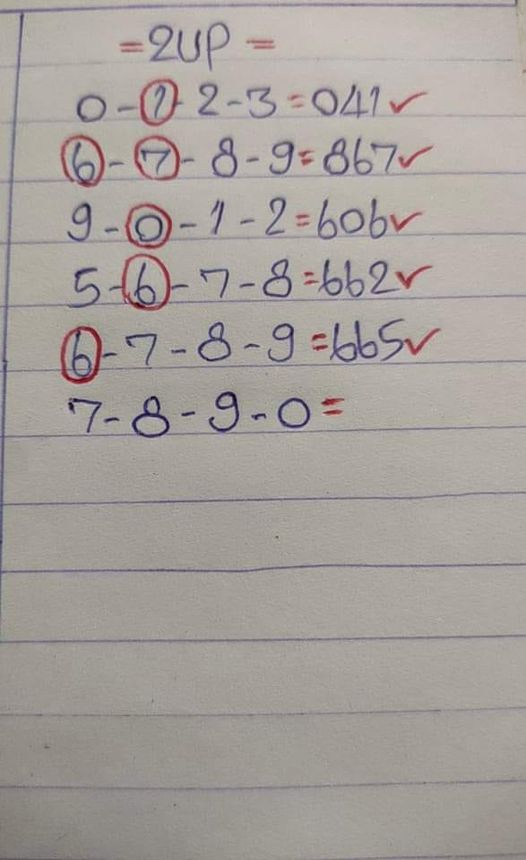 =2UP=
0-1-2-3=041✓
6-7-8-9=867✓
9-0-1-2=606✓
5-6-7-8=662✓
6-7-8-9=665✓
7-8-9-0=